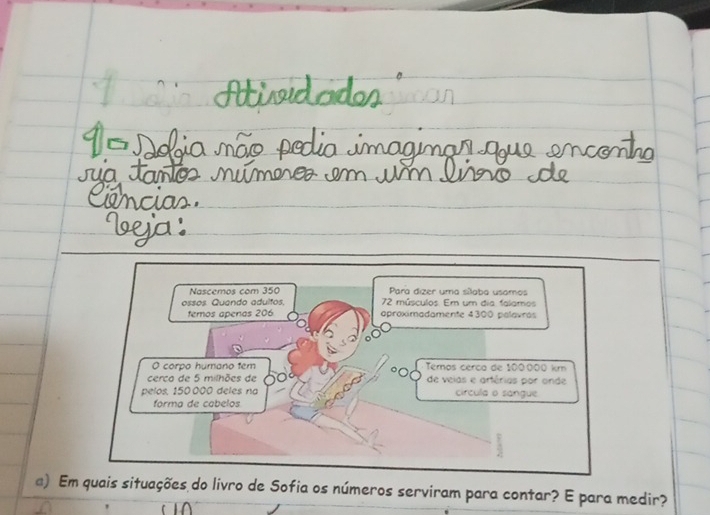 Atividades
1- Sofia não podia imaginar que encontra
ria tantos números em um livro de
Ciências.
Veja:
Nascemos com 350
ossos. Quando adultos,
temos apenas 206.
Para dizer uma sílaba usamos
72 músculos. Em um dia, falamos
aproximadamente 4300 palavras
O corpo humano tem
cerca de 5 milhões de
pelos, 150000 deles na
forma de cabelos.
Temos cerca de 100000 km
de veias e artérias por onde
circula o sangue.
a) Em quais situações do livro de Sofia os números serviram para contar? E para medir?